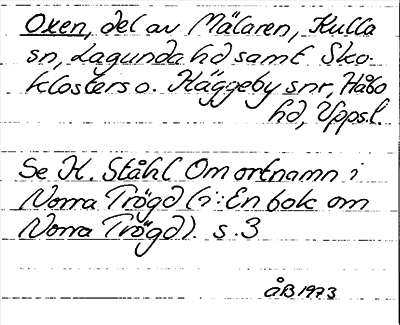 Oxen, del av Mälaren, Kulla
sn, Lagunda hd samt Sko-
klosters o. Häggeby snr, Håbo
hd, Uppsl.
Se H. Ståhl Om ortnamn i
Norra Trögd (i: En bok om
Norra Trögd). s. 3
ÅB 1973